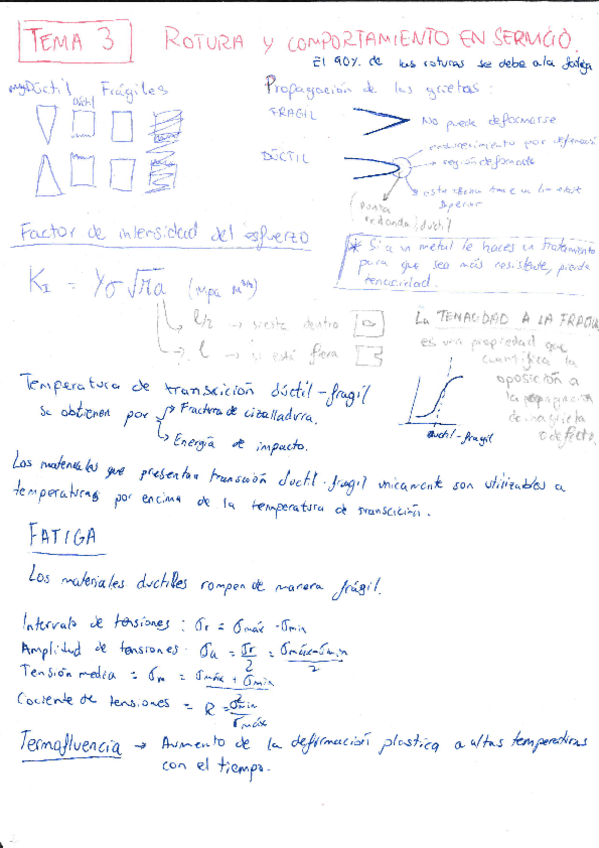 TEMA 3 ROTURA Y COMPORTAMIENTO EN SERVICIO.
El 90% de las roturas se debe a la fatiga
muy Dúctil Dúctil Frágiles
Propagación de las grietas:
FRAGIL
No puede deformarse
DÚCTIL
endurecimiento por deformació
región deformada
superior
(punta redonda) ductil
Factor de intensidad del esfuerzo
* Si a un metal le haces un tratamiento
para que sea más resistente, pierde
tenacidad.
K_I = Yσ√πa (Mpa m^1/2)
l/2 → si está dentro
l → si está fuera
La TENACIDAD A LA FRACTU
es una propiedad que
cuantifica la
oposición a
la propagación
de una grieta
o defecto.
ductil-fragil
Temperatura de transcición dúctil-fragil
se obtienen por → Fractura de cizalladura.
→ Energía de impacto.
Los materiales que presentan transición ductil-fragil unicamente son utilizables a
temperaturas por encima de la temperatura de transcición.
FATIGA
Los materiales ductilles rompen de manera frágil.
Intervalo de tensiones : σr = σmáx - σmin
Amplitud de tensiones: σa = σr/2 = σmáx-σmin/2
Tensión media = σm = σmáx + σmin/2
Cociente de tensiones = R = σmin/σmáx
Termofluencia → Aumento de la deformación plastica a altas temperatiras
con el tiempo.